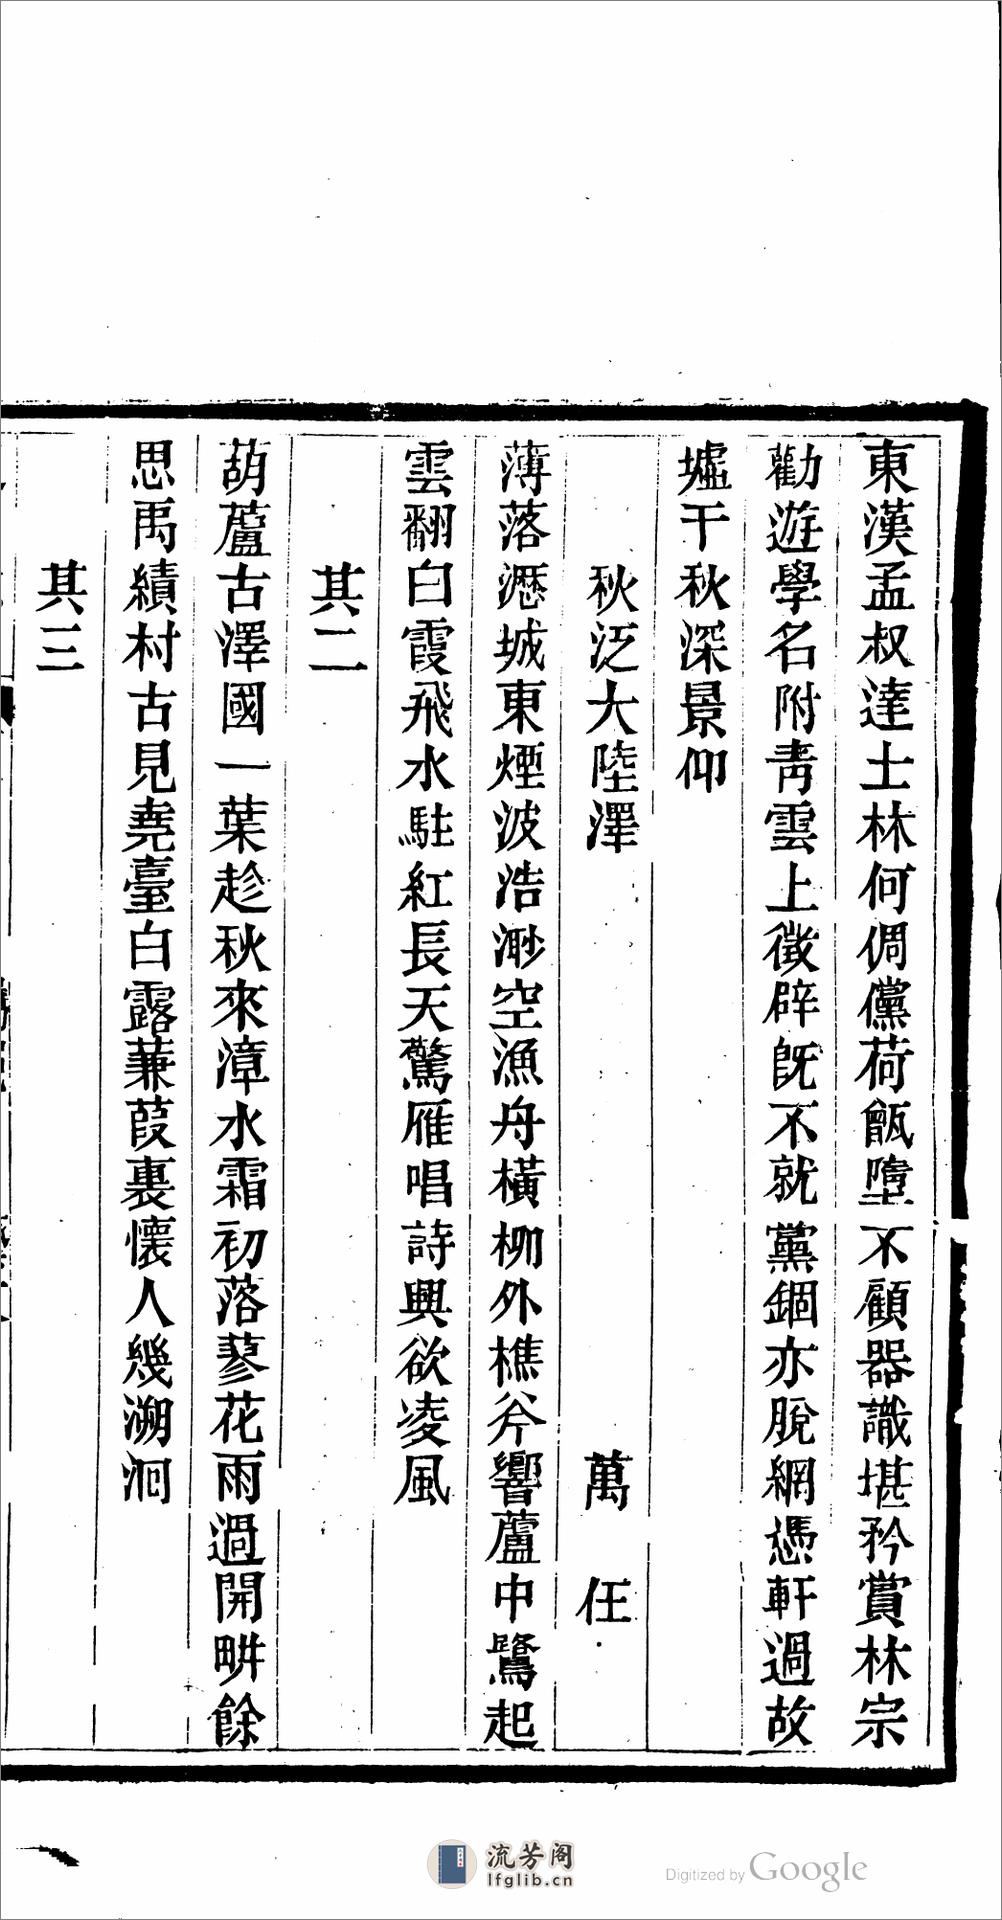 東漢孟叔達士林何倜儻荷甑墮不顧器識堪矜賞林宗
勸遊學名附青雲上徵辟既不就黨錮亦脫網憑軒過故
墟千秋深景仰
秋泛大陸澤　萬　任
薄落濕城東煙波浩渺空漁舟橫柳外樵斧響蘆中鷺起
雲翻白霞飛水駐紅長天驚雁唱詩興欲凌風
其二
葫蘆古澤國一葉趁秋來漳水霜初落蓼花雨過開畊餘
思禹績村古見堯臺白露蒹葭裏懷人幾溯洄
其三
流芳阁
lfglib.cn
Digitized by Google